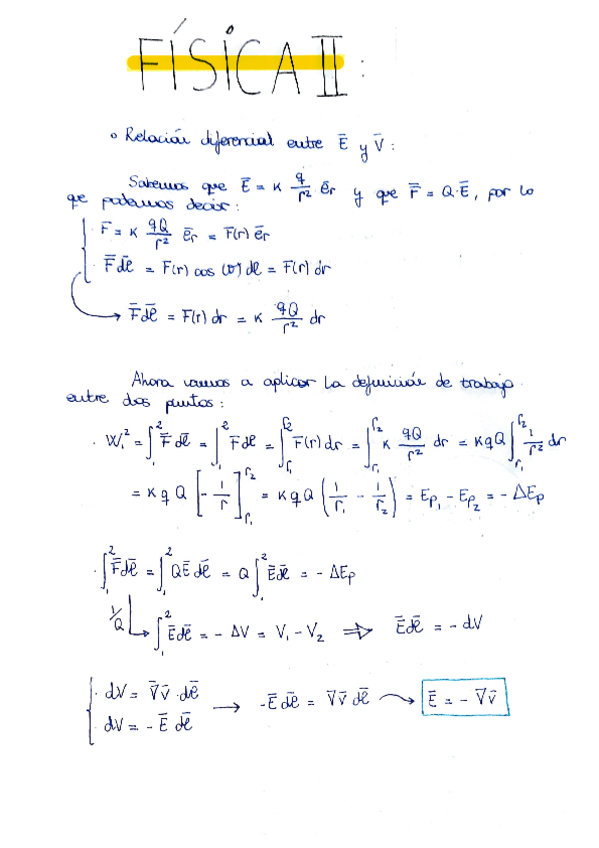 FÍSICA II :
° Relación diferencial entre Ē y V̄ :
Sabemos que Ē = K q/r² ēr y que F̄ = Q·Ē, por lo
que podemos decir :
· F̄ = K qQ/r² ēr = F(r) ēr
· F̄ dl̄ = F(r) cos (σ) dl = F(r) dr
→ F̄ dl̄ = F(r) dr = K qQ/r² dr
Ahora vamos a aplicar la definición de trabajo
entre dos puntos :
· W₁² = ∫₁² F̄ dl̄ = ∫₁² F dl = ∫r₁^r₂ F(r) dr = ∫r₁^r₂ K qQ/r² dr = K q Q ∫r₁^r₂ 1/r² dr
= K q Q [- 1/r]r₁^r₂ = K q Q (1/r₁ - 1/r₂) = Ep₁ - Ep₂ = - ΔEp
· ∫₁² F̄ dl̄ = ∫₁² QĒ dl̄ = Q ∫₁² Ē dl̄ = - ΔEp
1/Q → ∫₁² Ē dl̄ = - ΔV = V₁ - V₂ ⇒ Ē dl̄ = - dV
· dV = ∇̄v̄ · dl̄
· dV = - Ē dl̄ → -Ē dl̄ = ∇̄v̄ dl̄ → Ē = - ∇̄v̄